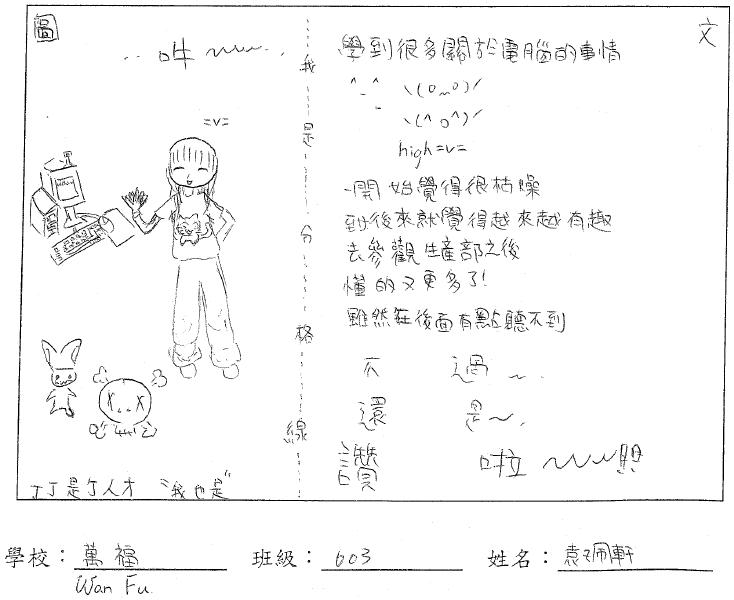 圖
‥吽~~~‥
我是分格線
=v=
丁丁是个人才 "我也是"
文
學到很多關於電腦的事情
^_^ ヽ(o_o)ノ
ヽ(^o^)ノ
high=v=
一開始覺得很枯燥
到後來就覺得越來越有趣
去參觀生產部之後
懂的又更多了!
雖然在後面有點聽不到
不過~.
還是~.
讚啦~~~!!!
學校：萬福 班級：603 姓名：袁珮軒
Wan Fu.